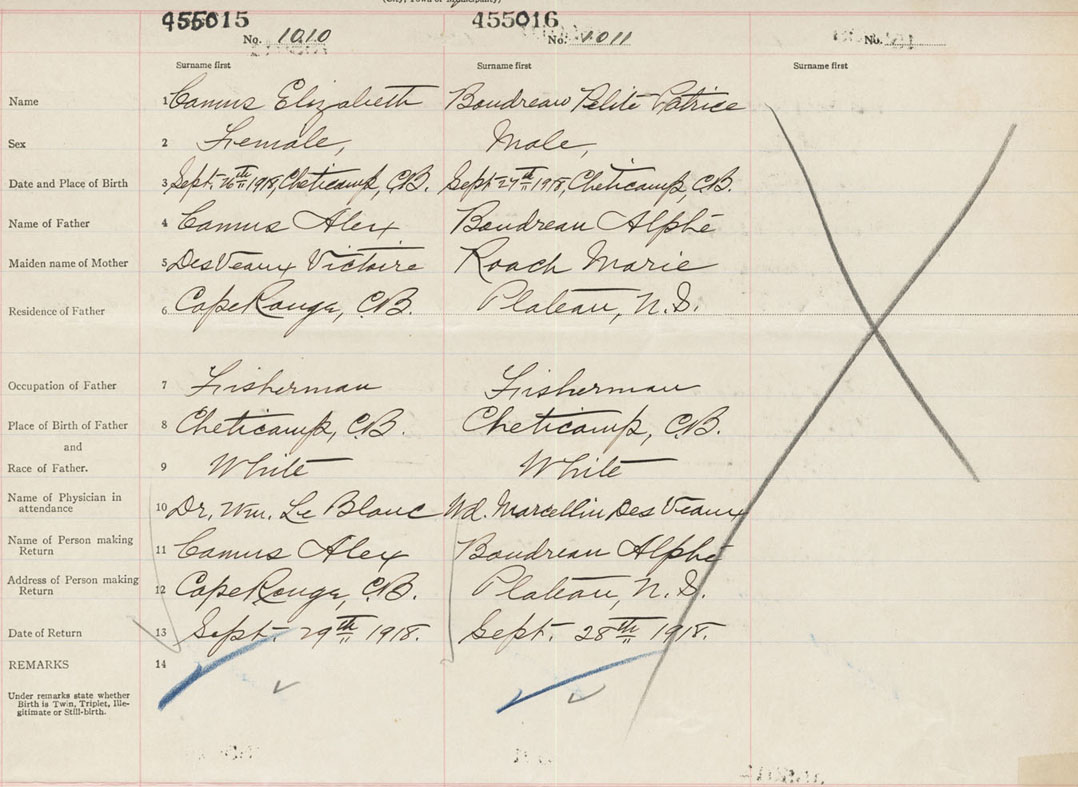 455015 455016
No. 1010 No. 1011 No.
Surname first Surname first Surname first
Name 1 Camus Elizabeth Boudreau Pelité Patrice
Sex 2 Female, Male,
Date and Place of Birth 3 Sept. 26th 1918, Cheticamp, C.B. Sept 27th 1918, Cheticamp, C.B.
Name of Father 4 Camus Alex Boudreau Alphé
Maiden name of Mother 5 DesVeaux Victoire Roach Marie
Residence of Father 6 Cape Rouge, C.B. Plateau, N.S.
Occupation of Father 7 Fisherman Fisherman
Place of Birth of Father 8 Cheticamp, C.B. Cheticamp, C.B.
and
Race of Father. 9 White White
Name of Physician in
attendance 10 Dr. Wm. Le Blanc Wd. Marcellin DesVeaux
Name of Person making
Return 11 Camus Alex Boudreau Alphé
Address of Person making
Return 12 Cape Rouge, C.B. Plateau, N.S.
Date of Return 13 Sept. 29th 1918. Sept. 28th 1918.
REMARKS 14
Under remarks state whether
Birth is Twin, Triplet, Ille-
gitimate or Still-birth.